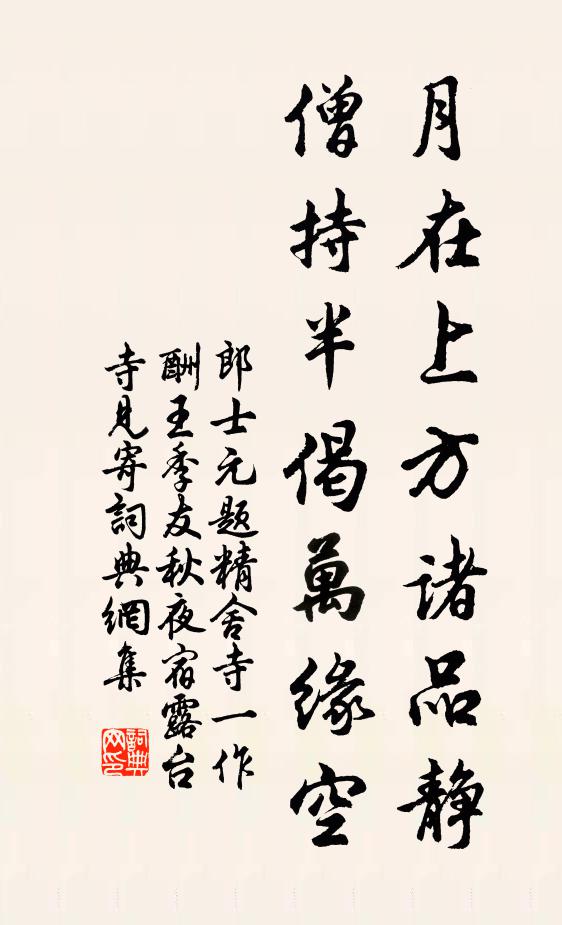 月在上方諸品静
僧持半偈萬緣空
郎士元題精舍寺一作
酬王季友秋夜宿露台
寺見寄詞典網集
詞典网印